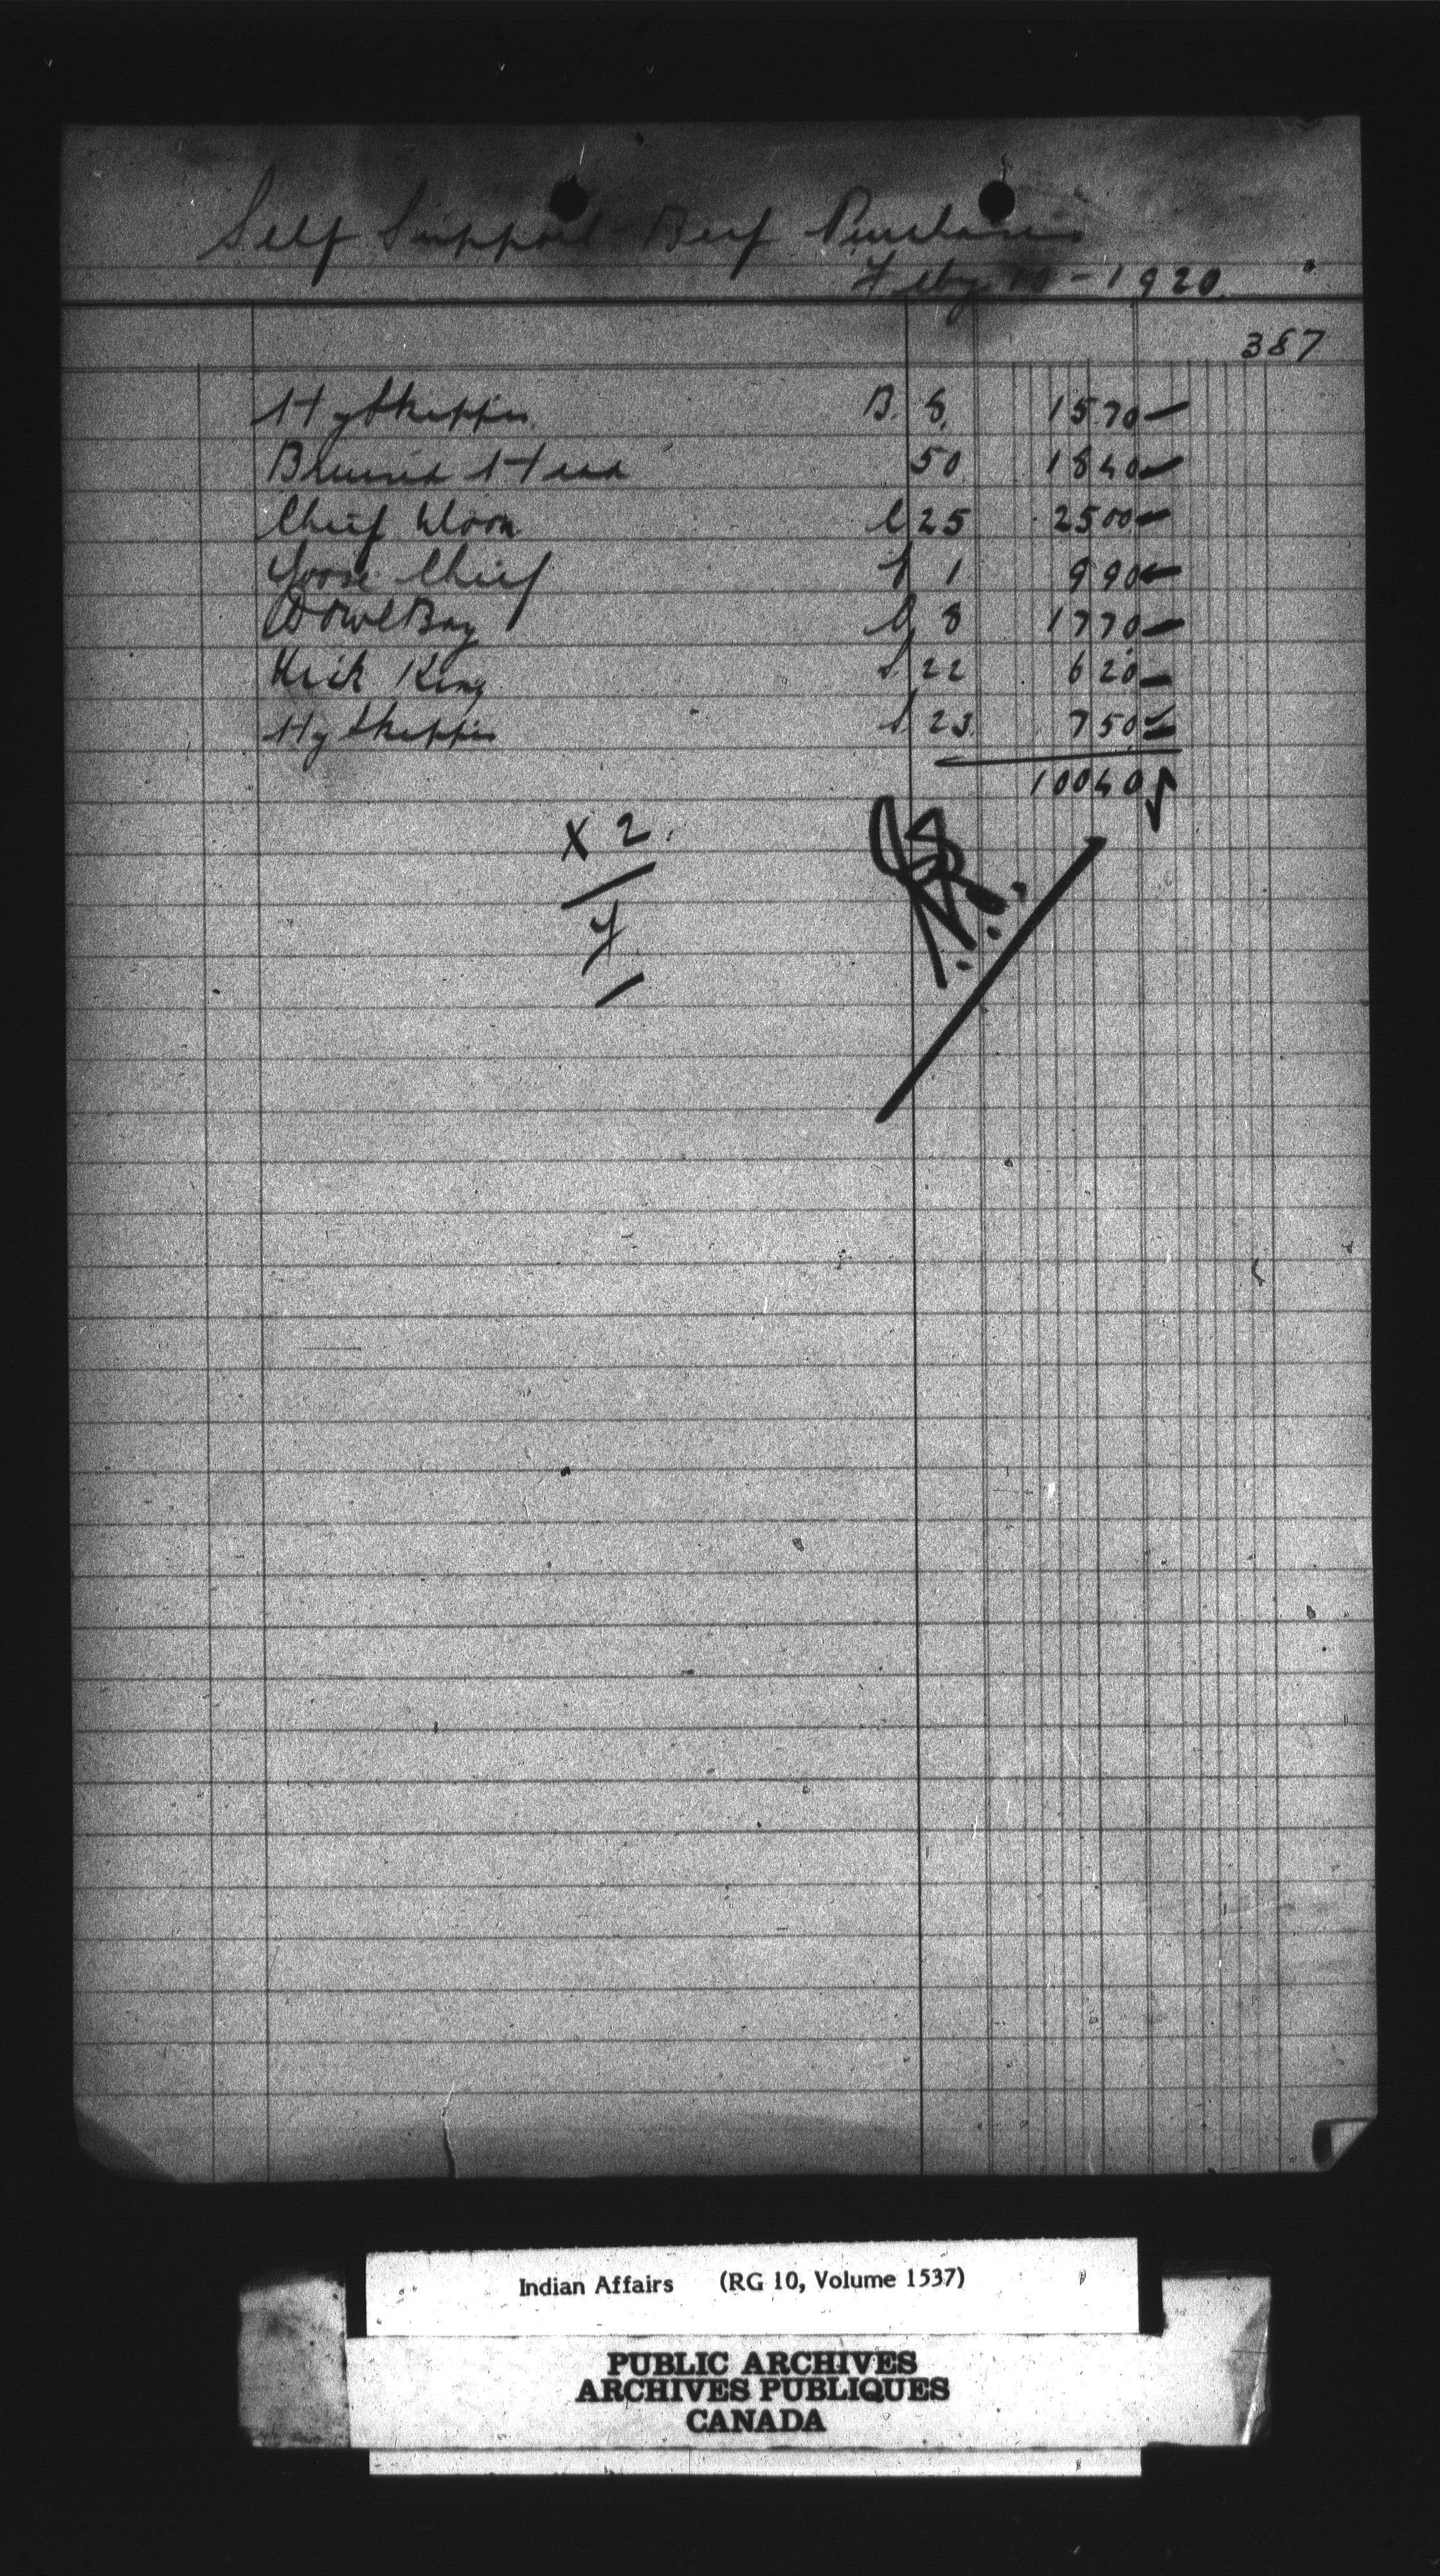 Self Support Beef Purchases
Feby 10 - 1920
387
Hy Skeppis B. 8. 15.70
Head 50 18 40
Chief Moon C 25 25 00
Goose Chief S 1 9 90
Owl Boy C 8 17 70
Dick King S. 22 6 20
Hy Skeppis S. 23. 7 50
100 40
X 2.
7
Indian Affairs (RG 10, Volume 1537)
PUBLIC ARCHIVES
ARCHIVES PUBLIQUES
CANADA